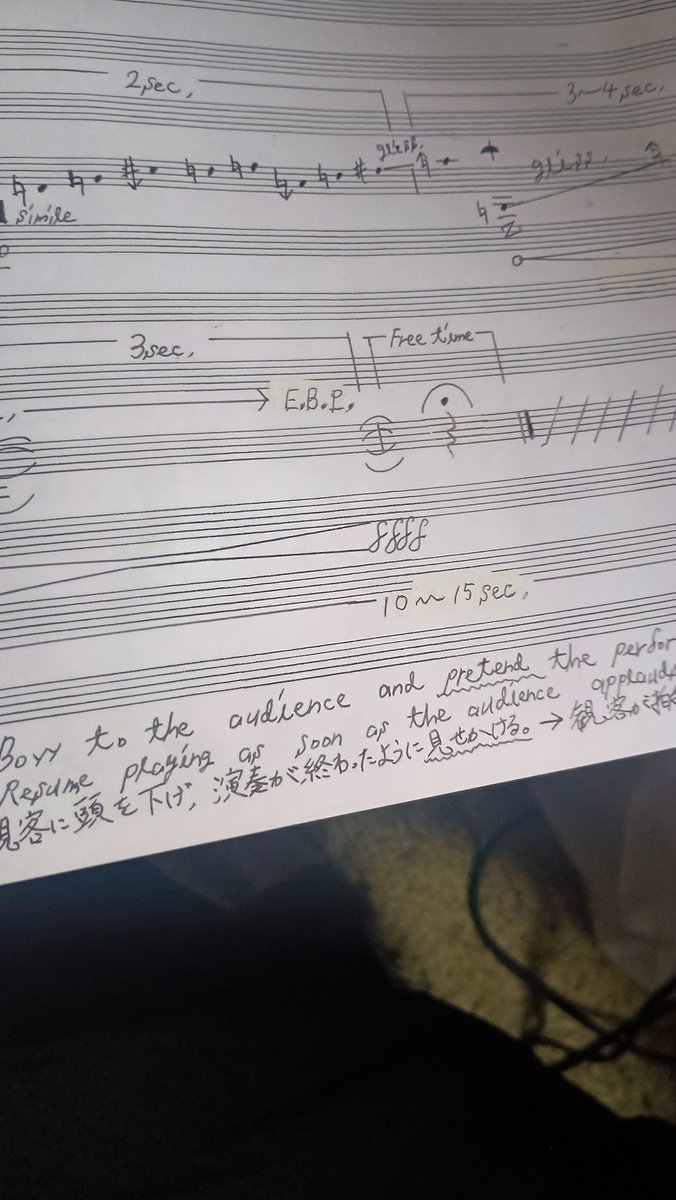 2sec,
3~4sec,
gliss.
gliss.
simile
3sec,
Free time
E.B.P.
ffff
10~15sec,
Bow to the audience and pretend the perfor
Resume playing as soon as the audience applauds
観客に頭を下げ、演奏が終わったように見せかける。→観客が拍